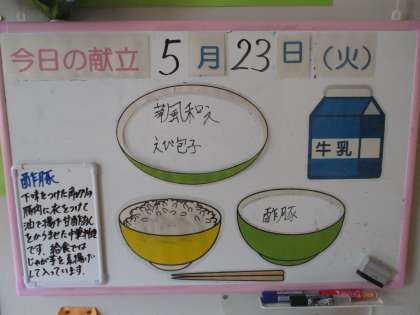 今日の献立 5月23日(火)
華風和え
えび包子
牛乳
酢豚
酢豚
下味をつけた角切り
豚肉に衣をつけて
油で揚げ甘酢あん
をからませた中華料理
です。給食では
じゃが芋を素揚げ
して入っています。